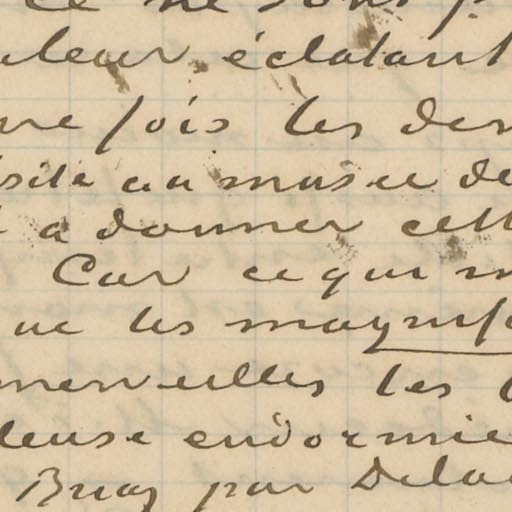 ce ne sont p
uleur éclatant
ne fois les der
isite au musée de
t a donner cett
Car ce qui m
ue les magnif
merveilles les
leuse endormie
Bruaz par Dela